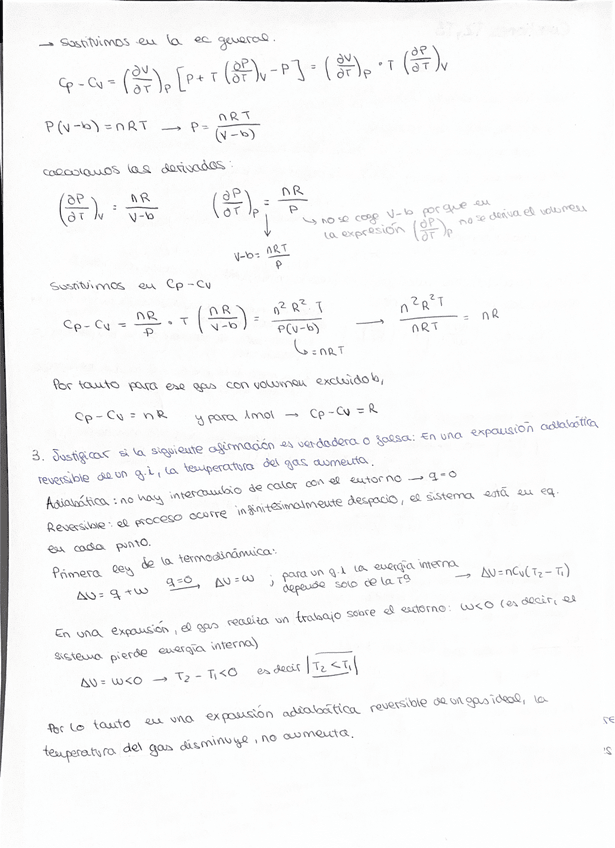 → Sustituimos en la ec general.
Cp - Cv = (∂V/∂T)_P [P + T (∂P/∂T)_V - P] = (∂V/∂T)_P · T (∂P/∂T)_V
P(V-b) = nRT → P = nRT/(V-b)
calculamos las derivadas:
(∂P/∂T)_V = nR/V-b (∂P/∂T)_P = nR/P
↳ no se coge V-b porque en
la expresión (∂P/∂T)_P no se deriva el volumen
V-b = nRT/P
Sustituimos en Cp-Cv
Cp - Cv = nR/P · T (nR/V-b) = n²R²T/P(V-b) → n²R²T/nRT = nR
↳ = nRT
Por tanto para ese gas con volumen excluido b,
Cp - Cv = nR y para 1mol → Cp - Cv = R
3. Justificar si la siguiente afirmación es verdadera o falsa: En una expansión adiabática
reversible de un g.i, la temperatura del gas aumenta.
Adiabática: no hay intercambio de calor con el entorno → q=0
Reversible: el proceso ocurre infinitesimalmente despacio, el sistema está en eq.
en cada punto.
Primera ley de la termodinámica:
ΔU = q + w q=0 → ΔU = w ; para un g.i la energía interna
depende solo de la Tª → ΔU = nCv(T₂-T₁)
En una expansión, el gas realiza un trabajo sobre el entorno: w<0 (es decir, el
sistema pierde energía interna)
ΔU = w<0 → T₂-T₁<0 es decir |T₂<T₁|
Por lo tanto en una expansión adiabática reversible de un gas ideal, la
temperatura del gas disminuye, no aumenta.